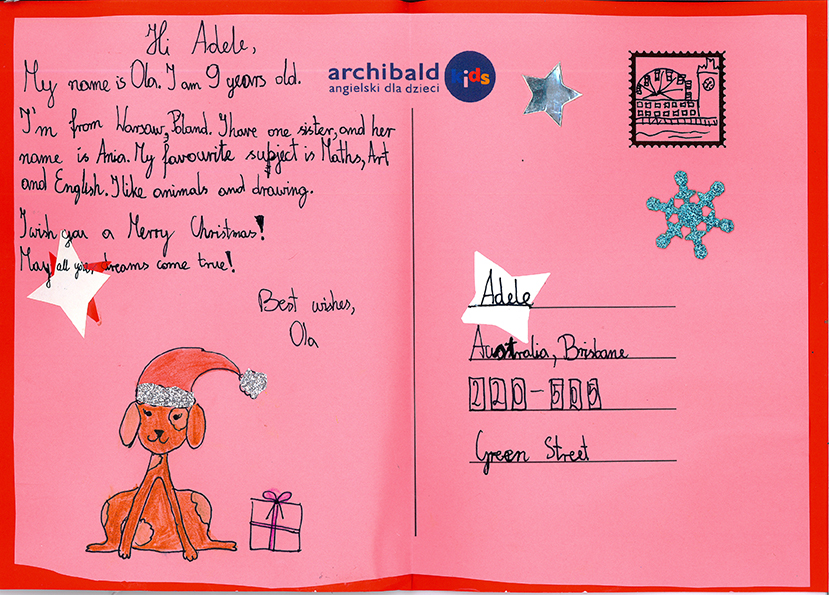 Hi Adele,
My name is Ola. I am 9 years old.
I'm from Warsaw, Poland. I have one sister, and her
name is Ania. My favourite subject is Maths, Art
and English. I like animals and drawing.
I wish you a Merry Christmas!
May all your dreams come true!
Best wishes,
Ola
archibald kids
angielski dla dzieci
Adele
Australia, Brisbane
220-505
Green Street